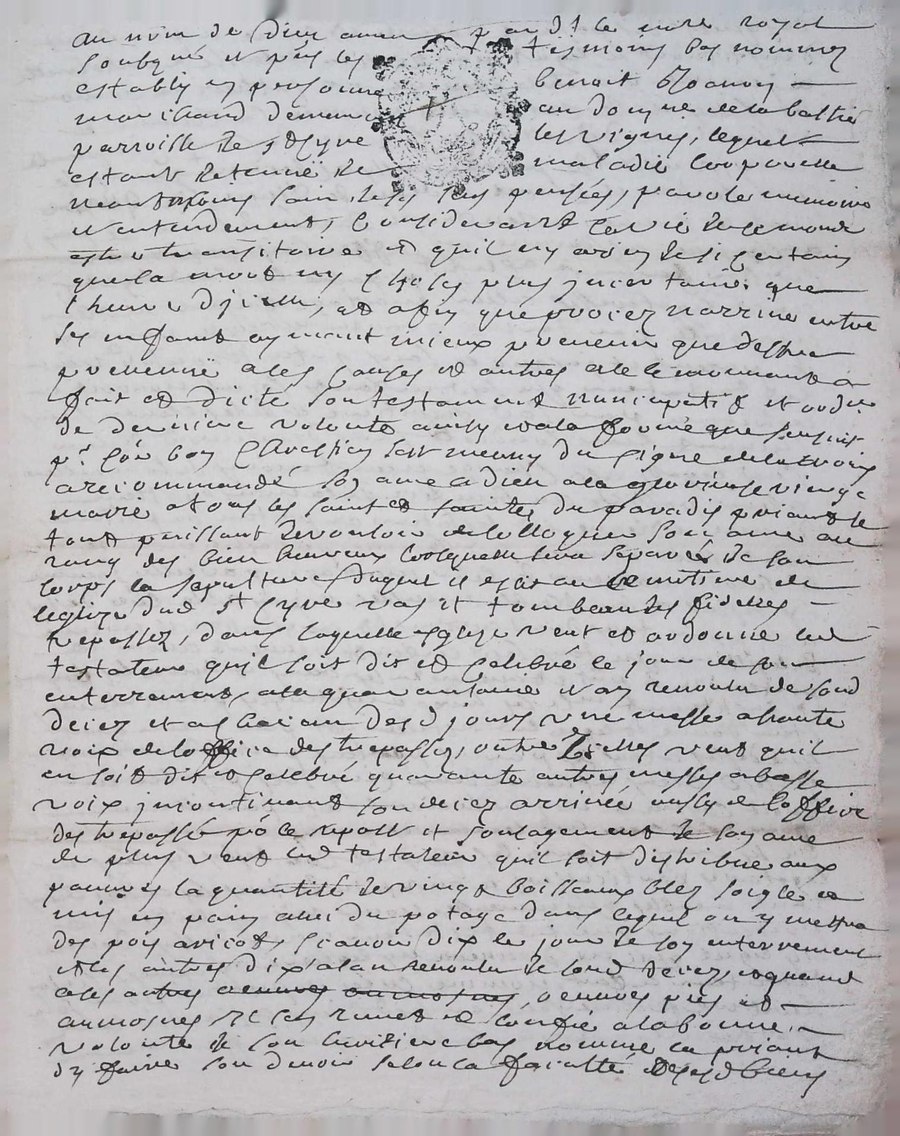 au nom de Dieu amen par dt le nore royal
soubzné et pnts les tesmoins bas nommez
estably en personne benoit
marchand demeurant au domyne de la bastie
parroisse de st Cyre les vignes, lequel
estant detenue de maladie corporelle
neantmoins sain de ses sens pensées, parole memoire
et entendement, considerant la vie de ce monde
estre transitoire et quil ny a rien de si certain
que la mort ny chose plus incertaine que
lheure dicelle, et afin que procez narrive entre
ses enfants aymant mieux prevenir que destre
prevenue a ses causes et autres a le mouvants a
fait et dicté son testament nuncupatif et ordce
de derniere volonté ainsy et a la forme que sensuit
pr coe bon chrestien sest muny du signe de la croix
a recommandé son ame a dieu a la glorieuse vierge
marie a tous les saints et saintes du paradis priant le
tout puissant de vouloir colloquer son ame au
rang des bien heureux lorsquelle sera separée de son
corps la sepulture duquel il eslit au cimetiere de
leglize dud st Cyre vas et tombeau des fidelles
trepassez, dans laquelle esglize veut et ordonne led
testateur quil soit dit et celebré le jour de son
enterrement, a la quarantaine et an revoulu de sond
decez et a chacun desd jours une messe a haute
voix de loffice des trepassez, outre icelles veut quil
en soit dit et celebré quarante autres messes a basse
voix incontinent son decez arrivée aussy de loffice
des trepassé po le repost et soulagement de son ame
de plus veut led testateur quil soit distribue aux
pauvres la quantité de vingt boisseaux bled soigle
mis en pain avec du potage dans lequel on y mettra
des pois aricots, scavoir dix le jour de son enterrement
et les autres dix a lan revoulu de sond decez, et quand
a les autres oeuvres aumosnes, oeuvres pies et
aumosnes il sen remet et confie a la bonne
volonté de son heritiere bas nommé la priant
dy faire son devoir selon la faculté desd biens